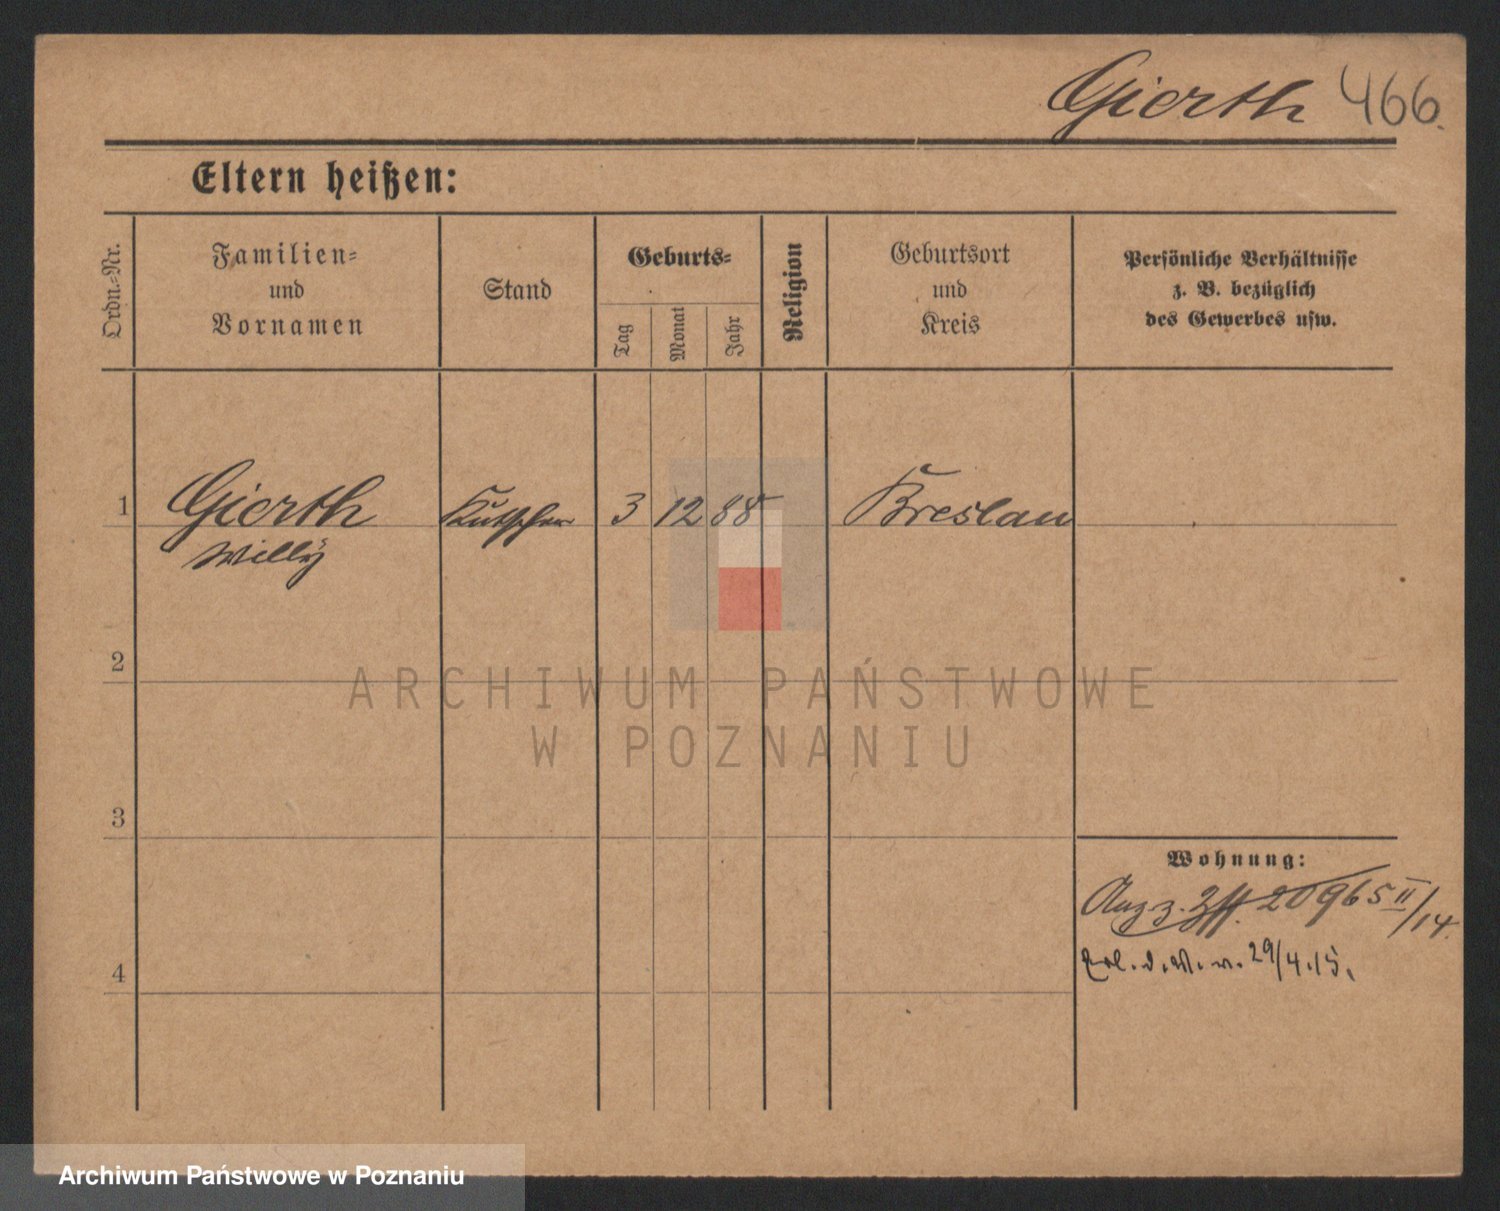 Gierth 466.
Eltern heißen:
Ordn.=Nr.
Familien=
und
Vornamen
Stand
Geburts=
Tag
Monat
Jahr
Religion
Geburtsort
und
Kreis
Persönliche Verhältnisse
z. B. bezüglich
des Gewerbes usw.
1 Gierth Kutscher 3 12 88 Breslau
Willy
2
ARCHIWUM PAŃSTWOWE
W POZNANIU
3
Wohnung:
20965 II/14.
4
29/4.15.
Archiwum Państwowe w Poznaniu